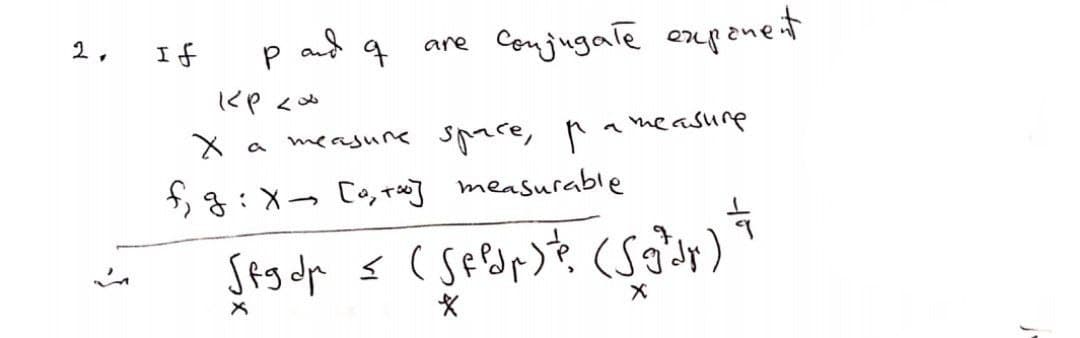 2. If p and q are Conjugate exponent
1<p<∞
X a measure space, μ a measure
f, g : X → [0,+∞] measurable
∫_X fg dμ ≤ (∫_X f^p dμ)^{1/p} . (∫_X g^q dμ)^{1/q}